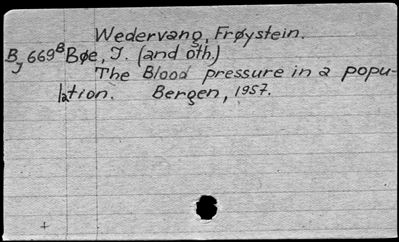 Wedervang, Frøystein.
B 669 B Bøe, J. (and oth.)
J The Blood pressure in a popu-
lation. Bergen, 1957.
+